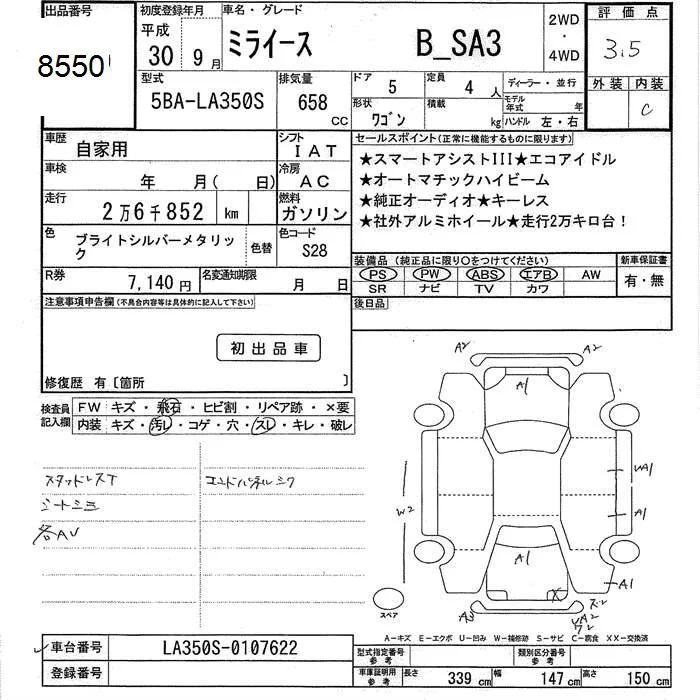 出品番号 初度登録年月 車名・グレード 2WD・4WD 評価点
8550 平成 30 9月 ミライース B_SA3 3.5
型式 排気量 ドア 5 定員 4人 ディーラー・並行 外装 内装
5BA-LA350S 658 CC 形状 ワゴン 積載 kg モデル年式 年 ハンドル 左・右 C
車歴 自家用 シフト IAT セールスポイント(正常に機能するものに限ります)
車検 年 月( 日) 冷房 AC ★スマートアシストIII★エコアイドル
★オートマチックハイビーム
走行 2万6千852 km 燃料 ガソリン ★純正オーディオ★キーレス
★社外アルミホイール★走行2万キロ台!
色 ブライトシルバーメタリック 色替 色コード S28
装備品(純正品に限り○をつけてください) 新車保証書
R券 7,140円 名変通知期限 月 日 PS PW ABS エアB AW 有・無
SR ナビ TV カワ
注意事項申告欄(不具合内容等は具体的に記入して下さい) 後日品
初出品車
修復歴 有〔箇所 〕
検査員記入欄 FW キズ・飛石・ヒビ割・リペア跡・×要
内装 キズ・汚レ・コゲ・穴・スレ・キレ・破レ
スタッドレスT エンドパネルシワ
シートシミ
各AU
A2 A2
A1
W2 UA1
A1
A1 A1
スペア X
A-キズ E-エクボ U-凹み W-補修跡 S-サビ C-腐食 XX-交換済
車台番号 LA350S-0107622 型式指定番号 参考 類別区分番号 参考
登録番号 車庫証明用 参考 長さ 339 cm 幅 147 cm 高さ 150 cm